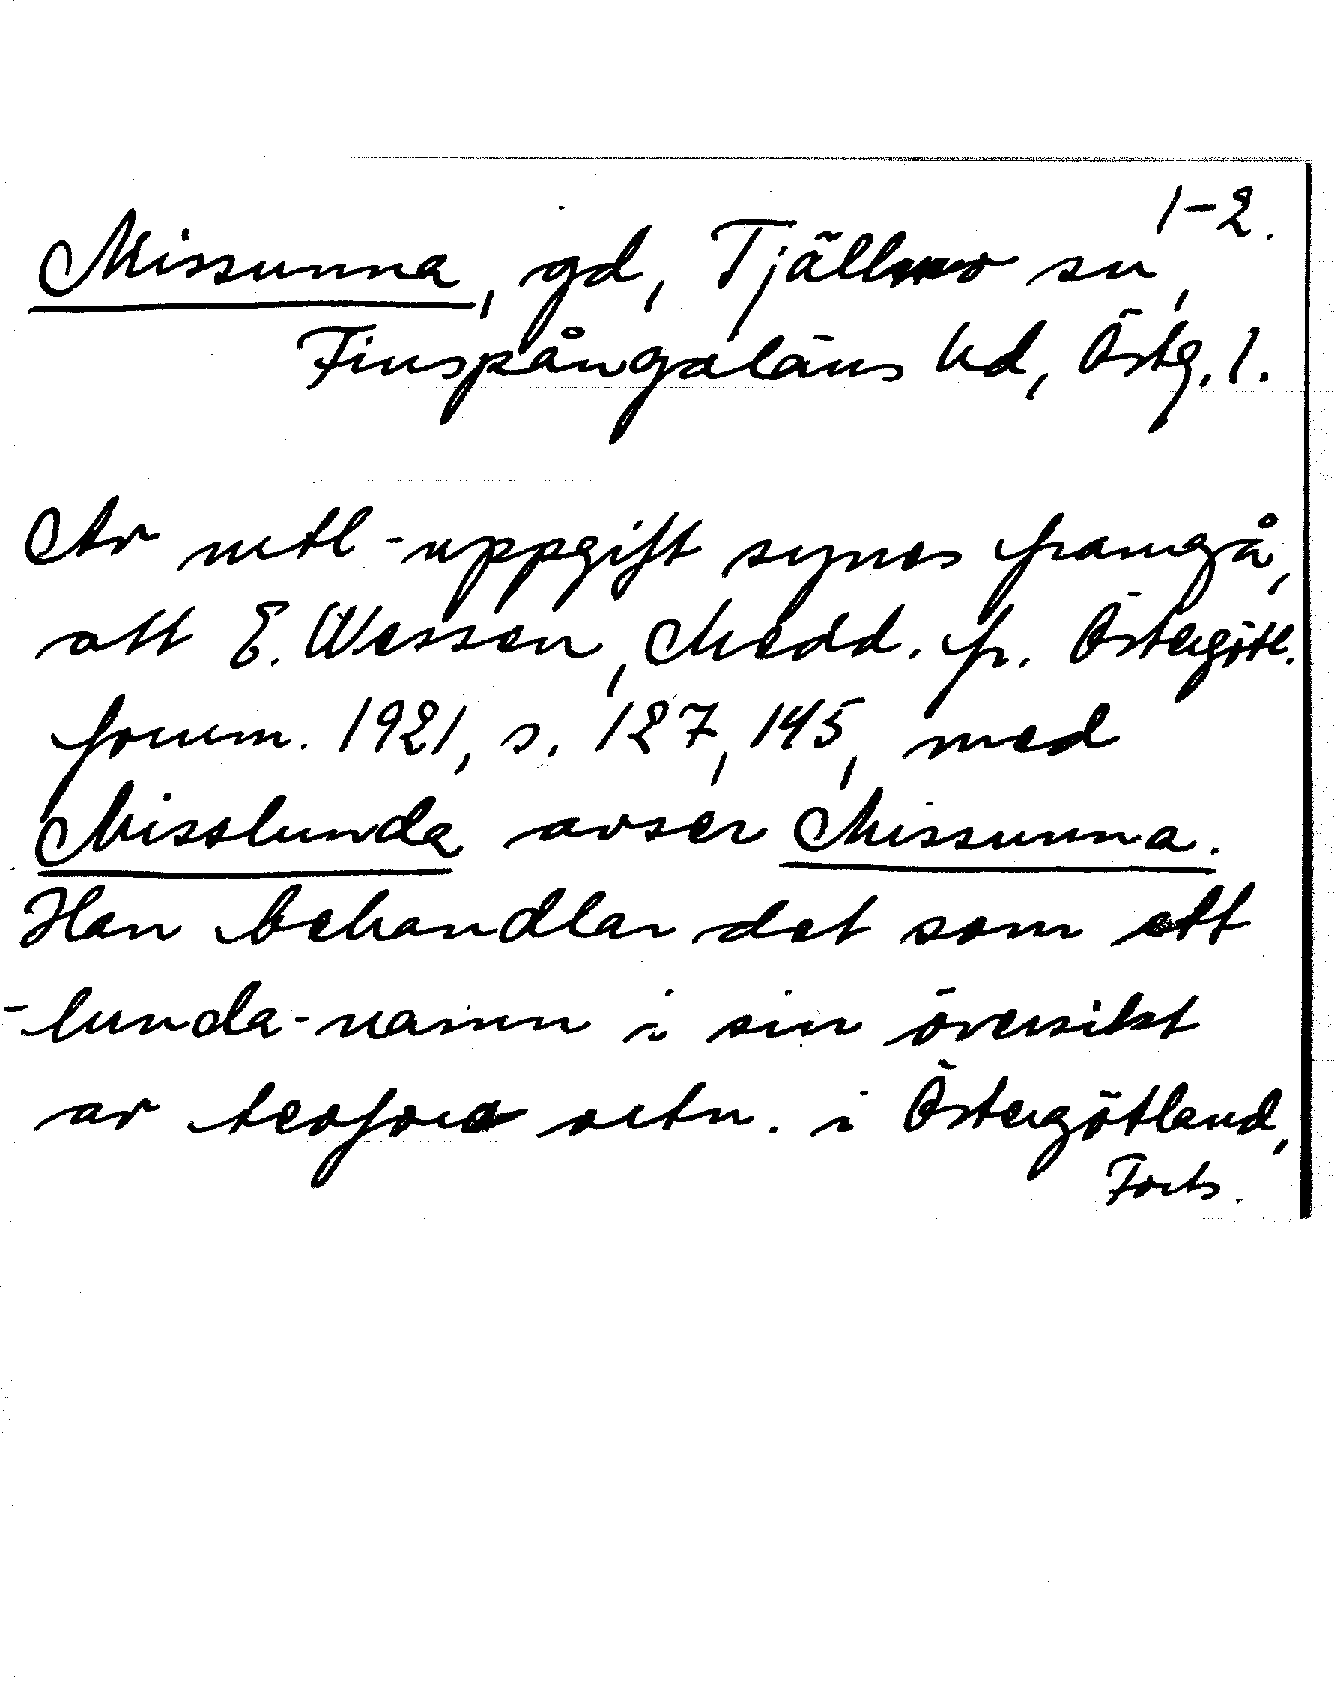 1-2.
Missunna, gd, Tjällmo sn,
Finspångaläns hd, Östg. l.
Av mtl-uppgift synes framgå,
att E. Wessen, Medd. fr. Östergötl.
fornm. 1921, s. 127, 145, med
Misslunda avser Missunna.
Han behandlar det som ett
-lunda-namn i sin översikt
av teofora ortn. i Östergötland,
Forts.